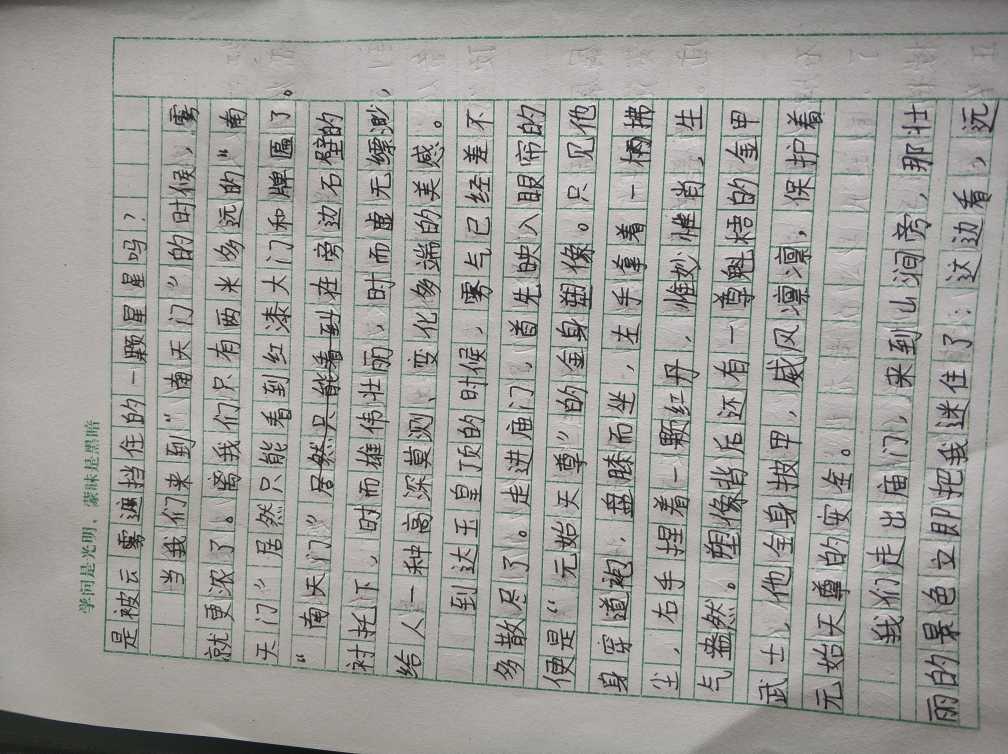 学问是光明，蒙昧是黑暗
是被云雾遮挡住的一颗星星吗？
当我们来到“南天门”的时候，雾
就更浓了。离我们只有两米多远的“南
天门”居然只能看到红漆大门和牌匾了。
“南天门”居然只能看到在旁边石壁的
衬托下，时而雄伟壮丽，时而虚无缥渺，
给人一种高深莫测、变化多端的美感。
到达玉皇顶的时候，雾气已经差不
多散尽了。走进庙门，首先映入眼帘的
便是“元始天尊”的金身塑像。只见他
身穿道袍，盘膝而坐，左手拿着一柄拂
尘，右手捏着一颗红丹，惟妙惟肖，生
气盎然。塑像背后还有一尊魁梧的金甲
武士，他全身披甲，威风凛凛，保护着
元始天尊的安全。
我们走出庙门，来到山涧旁，那壮
丽的景色立即把我迷住了：这边看，远